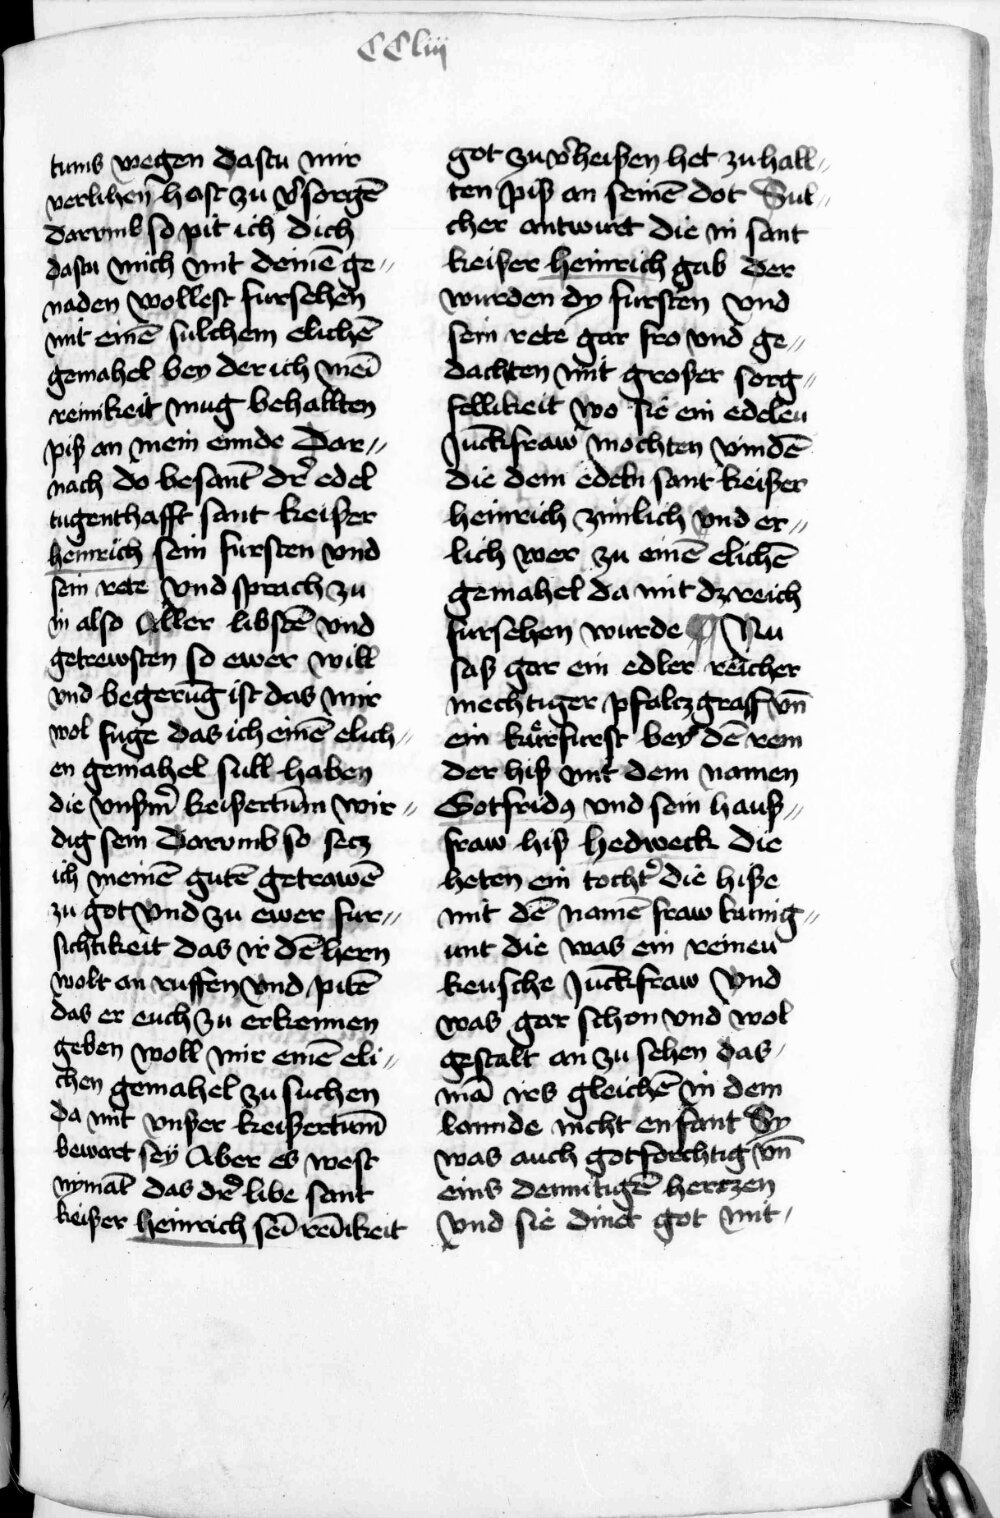 CCliij
tums wegen dastu mir
verlihen hast zu v̉sorgē
darvmb so pit ich dich
dastu mich mit deinē ge〃
naden wollest fursehen
mit einē sulchem elichē
gemahel bey der ich mei̅
reinikeit mug behallten
piß an mein ennde Dar〃
nach do besant̄ dr̉ edel
tugenthafft sant keißer
heinrich sein fursten vnd
sein rete vnd sprach zu
in also Aller libstē vnd
getrewsten so ewer will
vnd begerūg ist das mir
wol fuge das ich einē elich〃
en gemahel sull haben
die vnßm̉ keißertum̄ wir〃
dig sein Darvmb so secz
ich meinē gutē getrawē
zu got vnd zu ewer fur〃
sichtikeit das ir dē hern
wolt an ruffen vnd pitē
das er euch zu erkennen
geben woll mir einē eli〃
chen gemahel zu suchen
da mit vnßer keißertum̄
bewart sey Aber es west
nymāt das dr̉ libe sant
keißer heinrich sei̅ rei̅ikeit
got zu v̉heißen het zu hall〃
ten piß an seinē dot Sul〃
cher antwurt die in sant
keißer heinrich gab der
wurden dy fursten vnd
sein rete gar fro vnd ge〃
dachten mit großer sorg〃
fellikeit wo sie ein edeleu
Juckfraw mochten vindē
die dem edeln sant keißer
heinrich zimlich vnd er〃
lich wer zu einē elichē
gemahel da mit dz reich
fursehen wurde ¶ Nu
saß gar ein edler reicher
mechtiger pfalczgraff vn̄
ein kürfurst bey dē rein
der hiß mit dem namen
Gotfridꝯ vnd sein hauß〃
fraw hiß hedweck die
heten ein tocht̉ die hiße
mit dē namē fraw kunig〃
unt die was ein reineu
keusche Juckfraw vnd
was gar schon vnd wol
gestalt an zu sehen das
mā irs gleichē in dem
lannde nicht enfant Sy
was auch gotforchtig vn̄
eins demutigē herczen
vnd sie dinet got mit